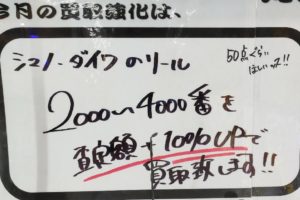 今月の買取強化は、
シマノ・ダイワのリール
50点ぐらい
ほしいッス!!
2000〜4000番を
査定額+10%UPで
買取致します!!